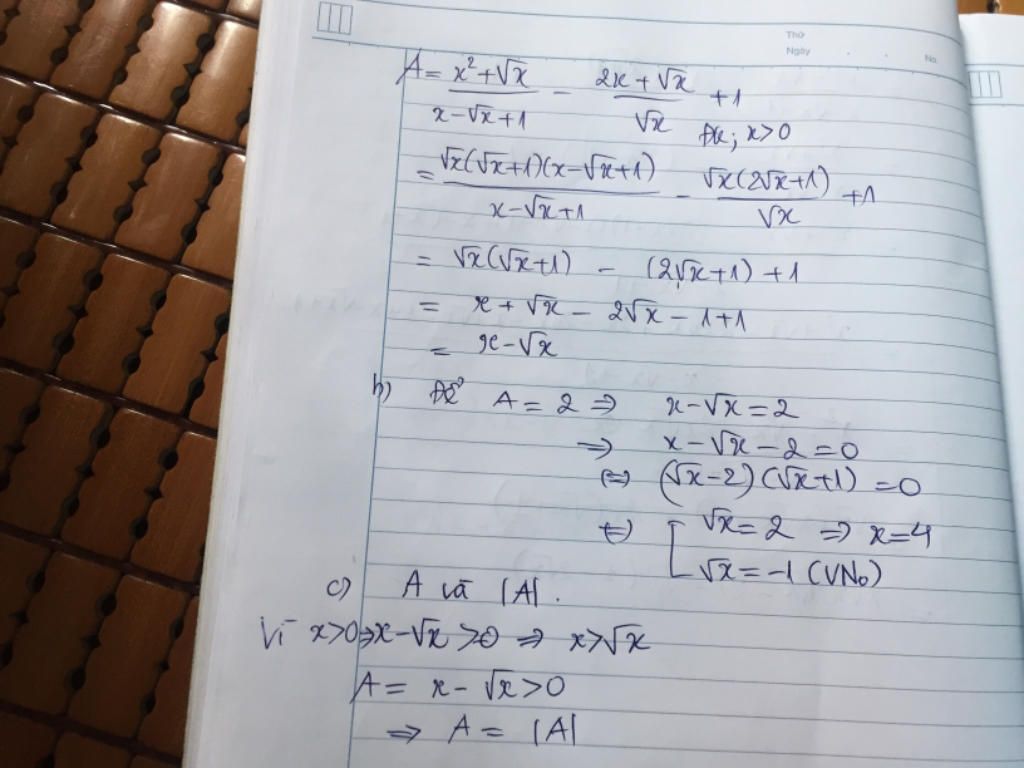 Thứ
Ngày
No.
A = \frac{x²+√x}{x-√x+1} - \frac{2x+√x}{√x} + 1
Đk; x>0
= \frac{√x(√x+1)(x-√x+1)}{x-√x+1} - \frac{√x(2√x+1)}{√x} + 1
= √x(√x+1) - (2√x+1) + 1
= x + √x - 2√x - 1 + 1
= x - √x
b) Để A = 2 ⇒ x-√x = 2
⇒ x-√x-2 = 0
⇔ (√x-2)(√x+1) = 0
⇔ [ √x = 2 ⇒ x = 4
√x = -1 (VNo)
c) A và |A|.
Vì x>0 ⇒ x-√x >0 ⇒ x>√x
A = x - √x > 0
⇒ A = |A|